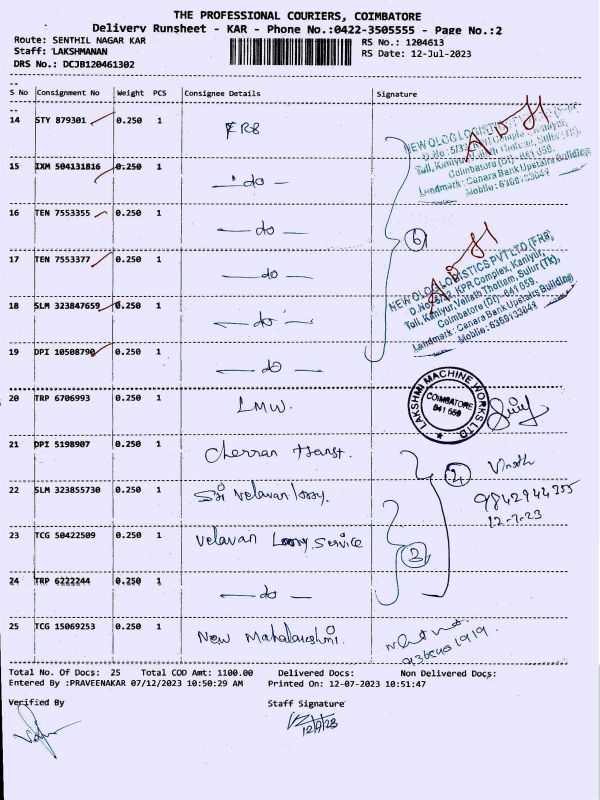 THE PROFESSIONAL COURIERS, COIMBATORE
Delivery Runsheet - KAR - Phone No.:0422-3505555 - Page No.:2
Route: SENTHIL NAGAR KAR
RS No.: 1204613
Staff: LAKSHMANAN
RS Date: 12-Jul-2023
DRS No.: DCJB120461302
S No Consignment No Weight PCS Consignee Details Signature
14 STY 879301 0.250 1 FRS
15 IXM 504131816 0.250 1 — do —
16 TEN 7553355 0.250 1 — do —
17 TEN 7553377 0.250 1 — do —
18 SLM 323847659 0.250 1 — do —
19 DPI 10508790 0.250 1 — do —
6
NEW OLOG LOGISTICS PVT LTD (FRS)
D.No:5/32, KPR Complex, Kaniyur,
Toll, Kaniyur, Vellath Thottam, Sulur (TK),
Coimbatore (Dt)- 641 659.
Landmark : Canara Bank Upstairs Building
Mobile : 6369133049
20 TRP 6706993 0.250 1 LMW.
LAKSHMI MACHINE WORKS LTD.
COIMBATORE
641 659
21 DPI 5198907 0.250 1 Cherran transt.
22 SLM 323855730 0.250 1 Sri Velavan lorry.
Vinoth
9842944355
12-7-23
23 TCG 50422509 0.250 1 Velavan Lorry Service
24 TRP 6222244 0.250 1 — do —
25 TCG 15069253 0.250 1 New Mahalakshmi.
Total No. Of Docs: 25 Total COD Amt: 1100.00 Delivered Docs: Non Delivered Docs:
Entered By :PRAVEENAKAR 07/12/2023 10:50:29 AM Printed On: 12-07-2023 10:51:47
Verified By Staff Signature